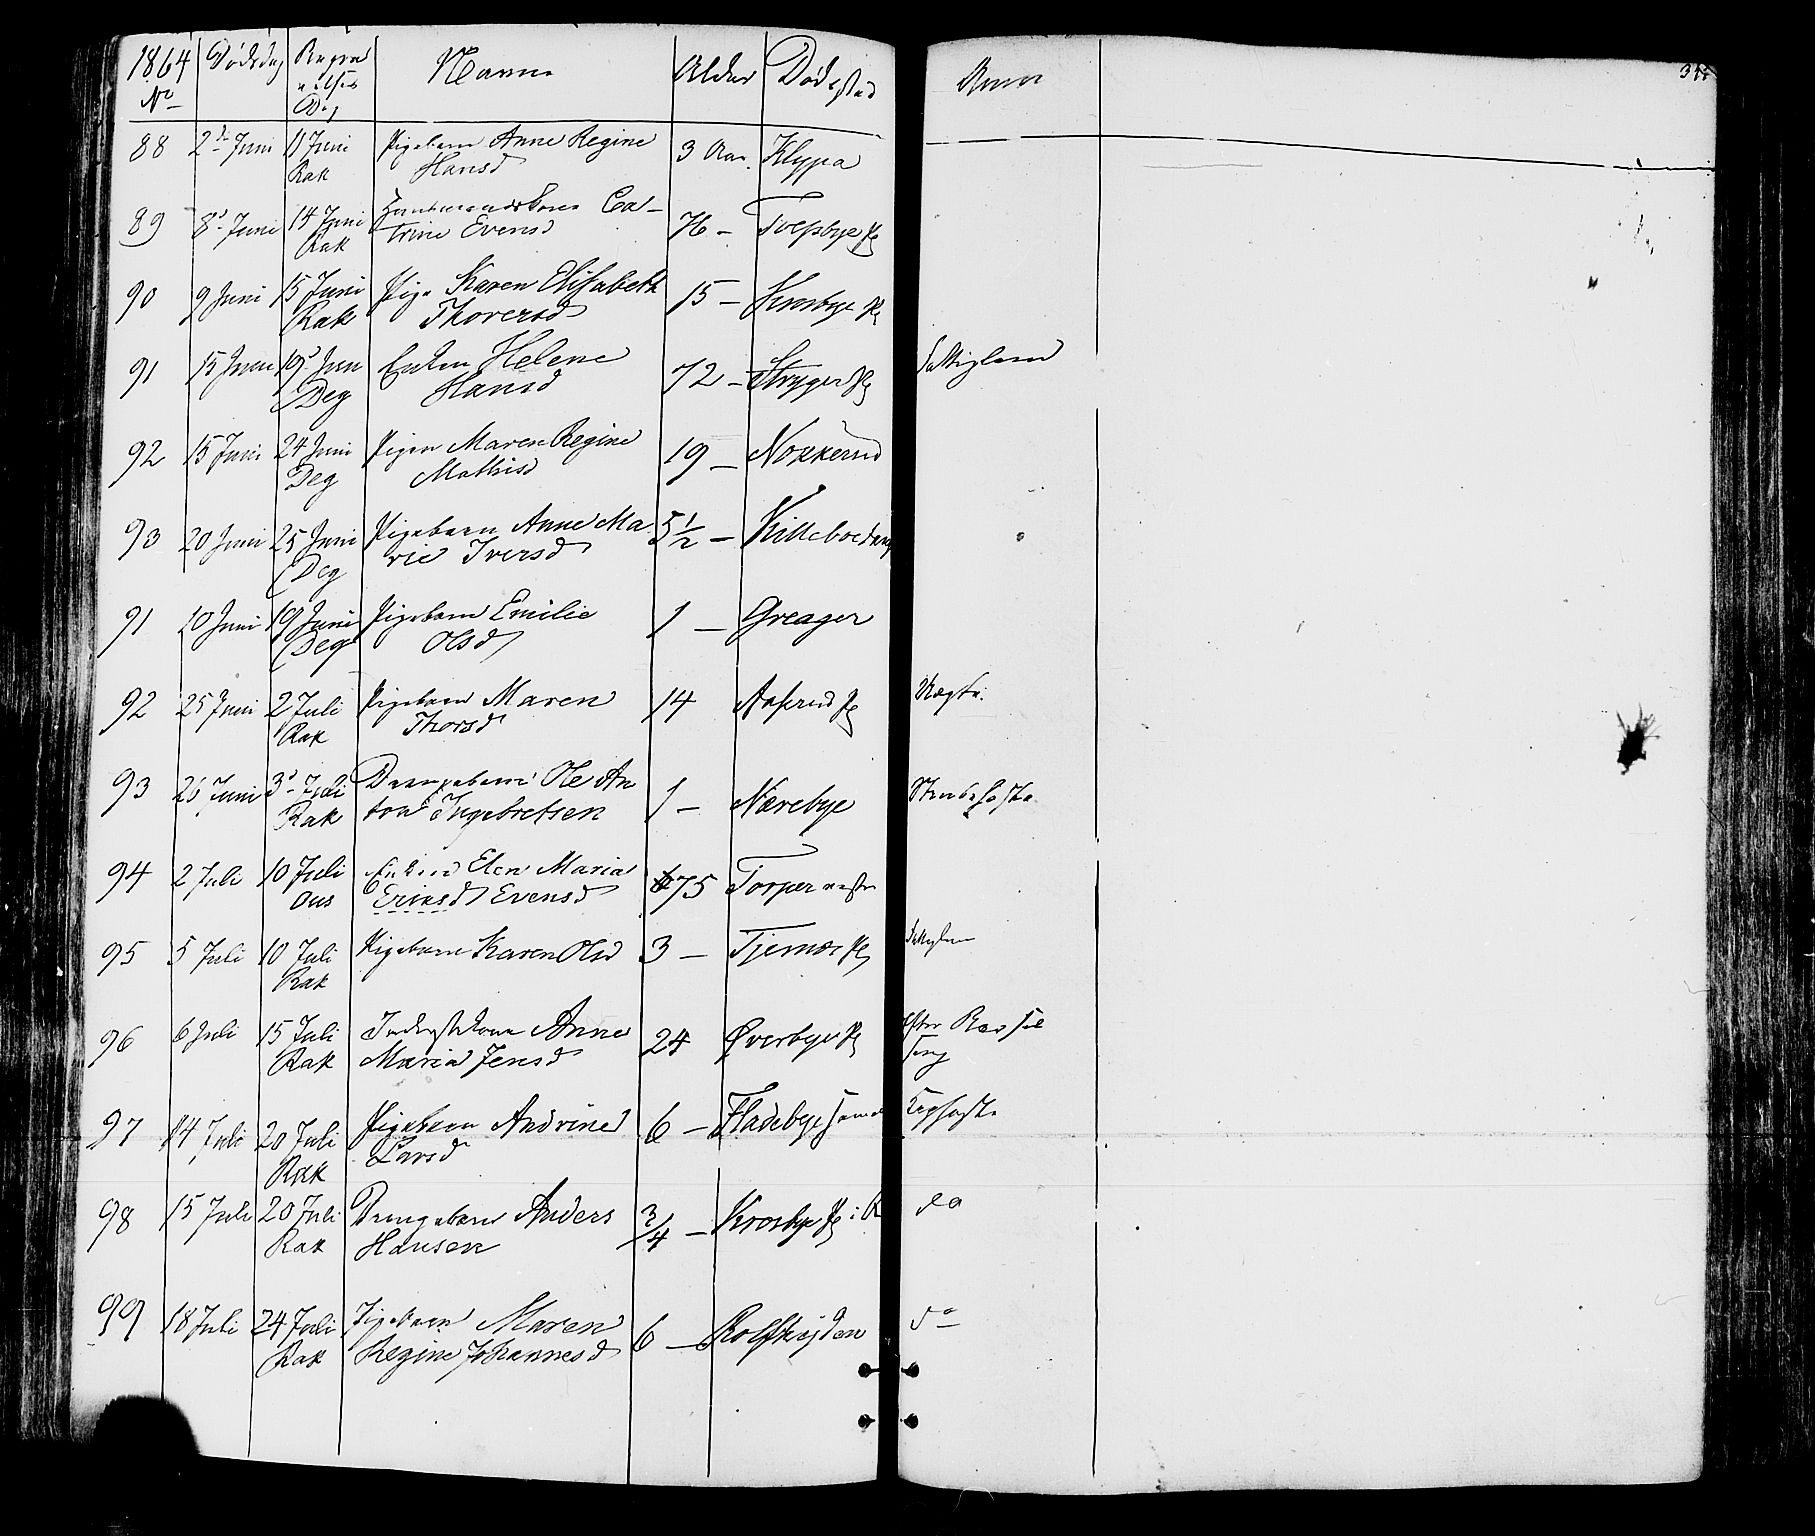 1864 Dødsdag Begravelses Navn Alder Dødssted Anm
No Dag
88 2d Juni 11 Juni Pigebarn Anne Regine 3 Aar Klypa
Rak Hansd
89 8d Juni 14 Juni Huusmandskone Ca- 76 -
Rak trine Evensd
90 9 Juni 15 Juni Pige Karen Elisabeth 15 - Krosbye
Rak Thoversd
91 15 Juni 19d Juni Enken Helene 72 - Stryger
Deg Hansd
92 15 Juni 24 Juni Pigen Maren Regine 19 -
Deg Mathisd
93 20 Juni 25 Juni Pigebarn Anne Ma 5 1/2 -
Deg rie Iversd
91 10 Juni 19 Juni Pigebarn Emilie 1 - Greager
Deg Olsd
92 25 Juni 2 Juli Pigebarn Maren 14
Rak Thorsd
93 26 Juni 3d Juli Drengebarn Ole An 1 - Nærebye
Rak ton Ingebretsen
94 2 Juli 10 Juli Enken Elen Maria 75 Torper
Ous Eriksd Evensd
95 5 Juli 10 Juli Pigebarn Karen Olsd 3 - Tjernæs
Rak
96 6 Juli 15 Juli Inderstkone Anne 24 Øverbye efter Barsel
Rak Maria Jensd seng
97 14 Juli 20 Juli Pigebarn Andrine 6 - Fladebye
Rak Larsd
98 15 Juli 20 Juli Drengebarn Anders 3/4 - Krosbye
Rak Hansen do
99 18 Juli 24 Juli Pigebarn Maren 6 - Rolfshejden do
Rak Regine Johannesd